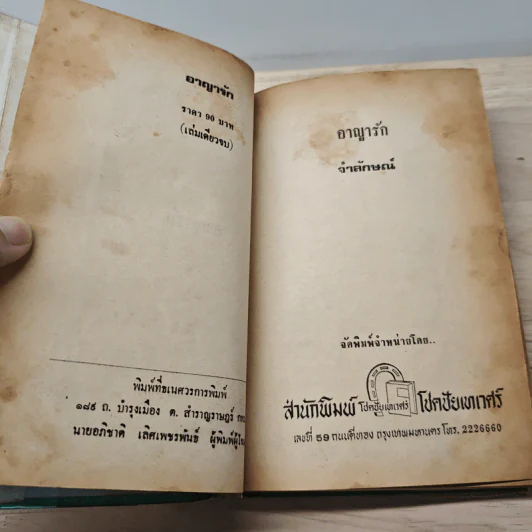 อาญารัก
ราคา 90 บาท
(เล่มเดียวจบ)
พิมพ์ที่ธเนศวรการพิมพ์
๑๘๙ ถ. บำรุงเมือง ต. สำราญราษฎร์
นายอภิชาติ เลิศเพชรพันธ์ ผู้พิมพ์ผู้
อาญารัก
จำลักษณ์
จัดพิมพ์จำหน่ายโดย..
สำนักพิมพ์ โชคชัยเทเวศร์ โชคชัยเทเวศร์
เลขที่ 59 ถนนตีทอง กรุงเทพมหานคร โทร. 2226660